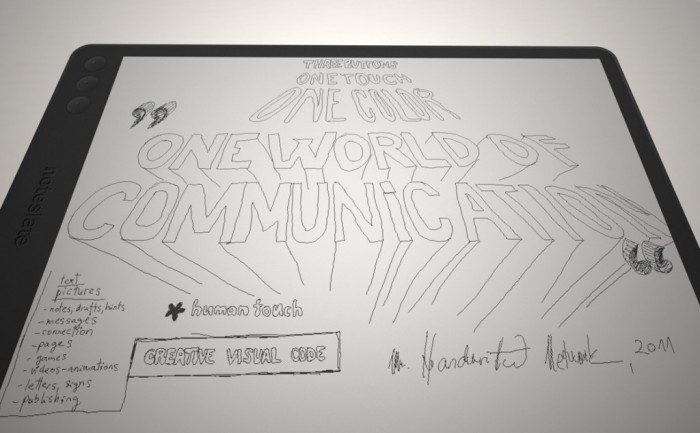 THREE BUTTONS
ONE TOUCH
ONE COLOR
" ONE WORLD OF
COMMUNICATION "
noteslate
text
pictures
- notes, drafts, hints
- messages
- connection
- pages
- games
- videos-animations
- letters, signs
- publishing
* human touch
CREATIVE VISUAL CODE
Mr. Handwritted Network, 2011